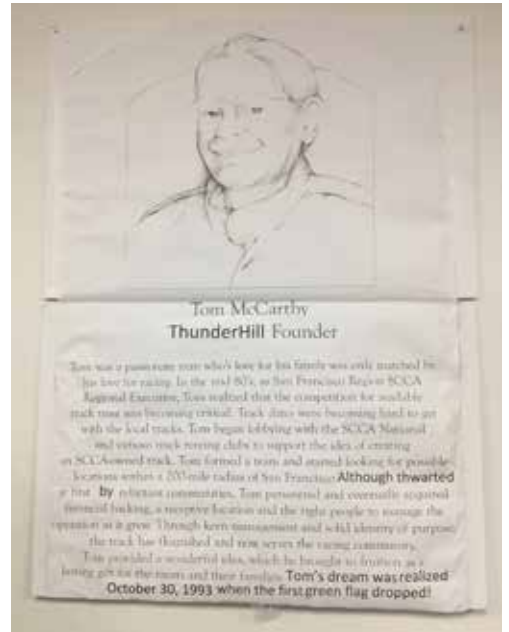 Tom McCarthy
ThunderHill Founder
Tom was a passionate man who's love for his family was only matched by
his love for racing. In the mid 80's, as San Francisco Region SCCA
Regional Executive, Tom realized that the competition for available
track time was becoming critical. Track dates were becoming hard to get
with the local tracks. Tom began lobbying with the SCCA National
and various track renting clubs to support the idea of creating
an SCCA owned track. Tom formed a team and started looking for possible
locations within a 200 mile radius of San Francisco. Although thwarted
at first by reluctant communities, Tom persevered and eventually acquired
financial backing, a receptive location and the right people to manage the
operation as it grew. Through keen management and solid identity of purpose
the track has flourished and now serves the racing community.
Tom provided a wonderful idea, which he brought to fruition as a
lasting gift for the racers and their families. Tom's dream was realized
October 30, 1993 when the first green flag dropped!